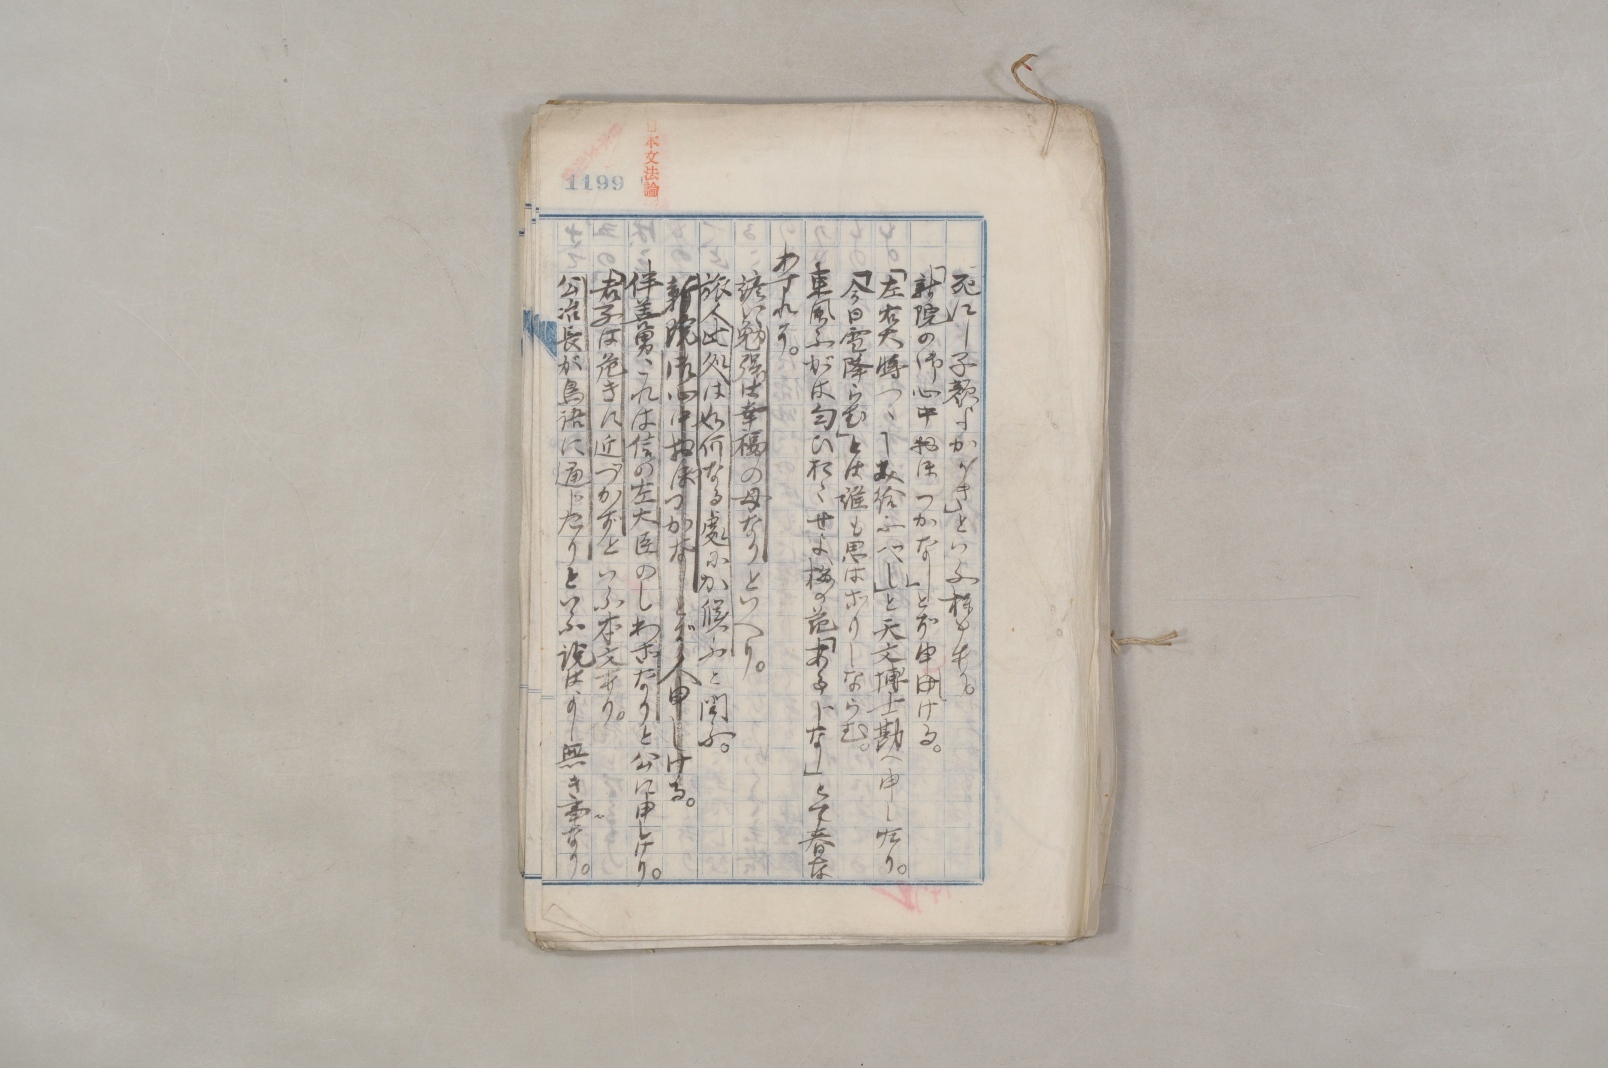 日本文法論
1199
死にし子顔よかりき」といふ様もあり。
「新院の御心中おぼつかなし」とぞ申しける。
「左右大将つゝしみ給ふべし」と天文博士勘へ申したり。
「今日雪降らむ」とは誰も思はざりしならむ。
東風ふかば匂ひおこせよ梅の花「あるじなし」とて春な
わすれそ。
諺に勉強は幸福の母なりといへり。
旅人此処は如何なる處にか候ふと問ふ。
新院御心中おぼつかなしとぞ人申しける。
伴善男、これは信の左大臣のしわざなりと公に申しけり。
君子は危きに近づかずといふ本文あり。
公冶長が鳥語に通じたりといふ説はよし無き事なり。